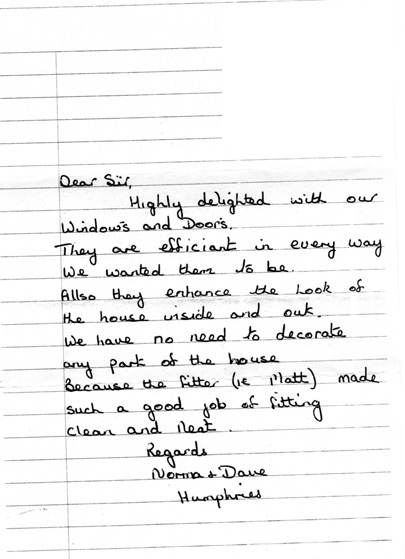 Dear Sir,
Highly delighted with our
Window's and Door's.
They are efficiant in every way
We wanted them to be.
Allso they enhance the Look of
the house inside and out.
We have no need to decorate
any part of the house
Because the fitter (ie Matt) made
such a good job of fitting
Clean and Neat.
Regards
Norma + Dave
Humphries